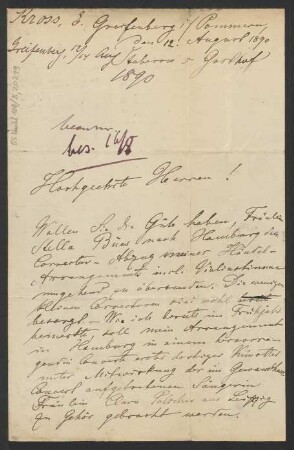 Kross, E. Greifenberg i/ Pommern,
Greifenberg 12/14 Aug
den 12. August 1890
1890
55 Nachl 100/B, 20299
bes. 16/8
Hochgeehrte Herren!
Wollen Sie die Güte haben, Fräulein
Stella nach Hamburg den
Correctur-Abzug meiner Händel-
Arrangements incl. Violinstimme
umgehend zu übersenden. Die wenigen
kleinen Correcturen sind wohl
besorgt. Wie ich bereits im Frühjahr
bemerkte, soll mein Arrangement
in Hamburg in einem
Concerte erste
unter Mitwirkung der im Gewandhaus-
Concert aufgetretenen Sängerin
Fräulein Clara Polscher aus Leipzig
zu Gehör gebracht werden.